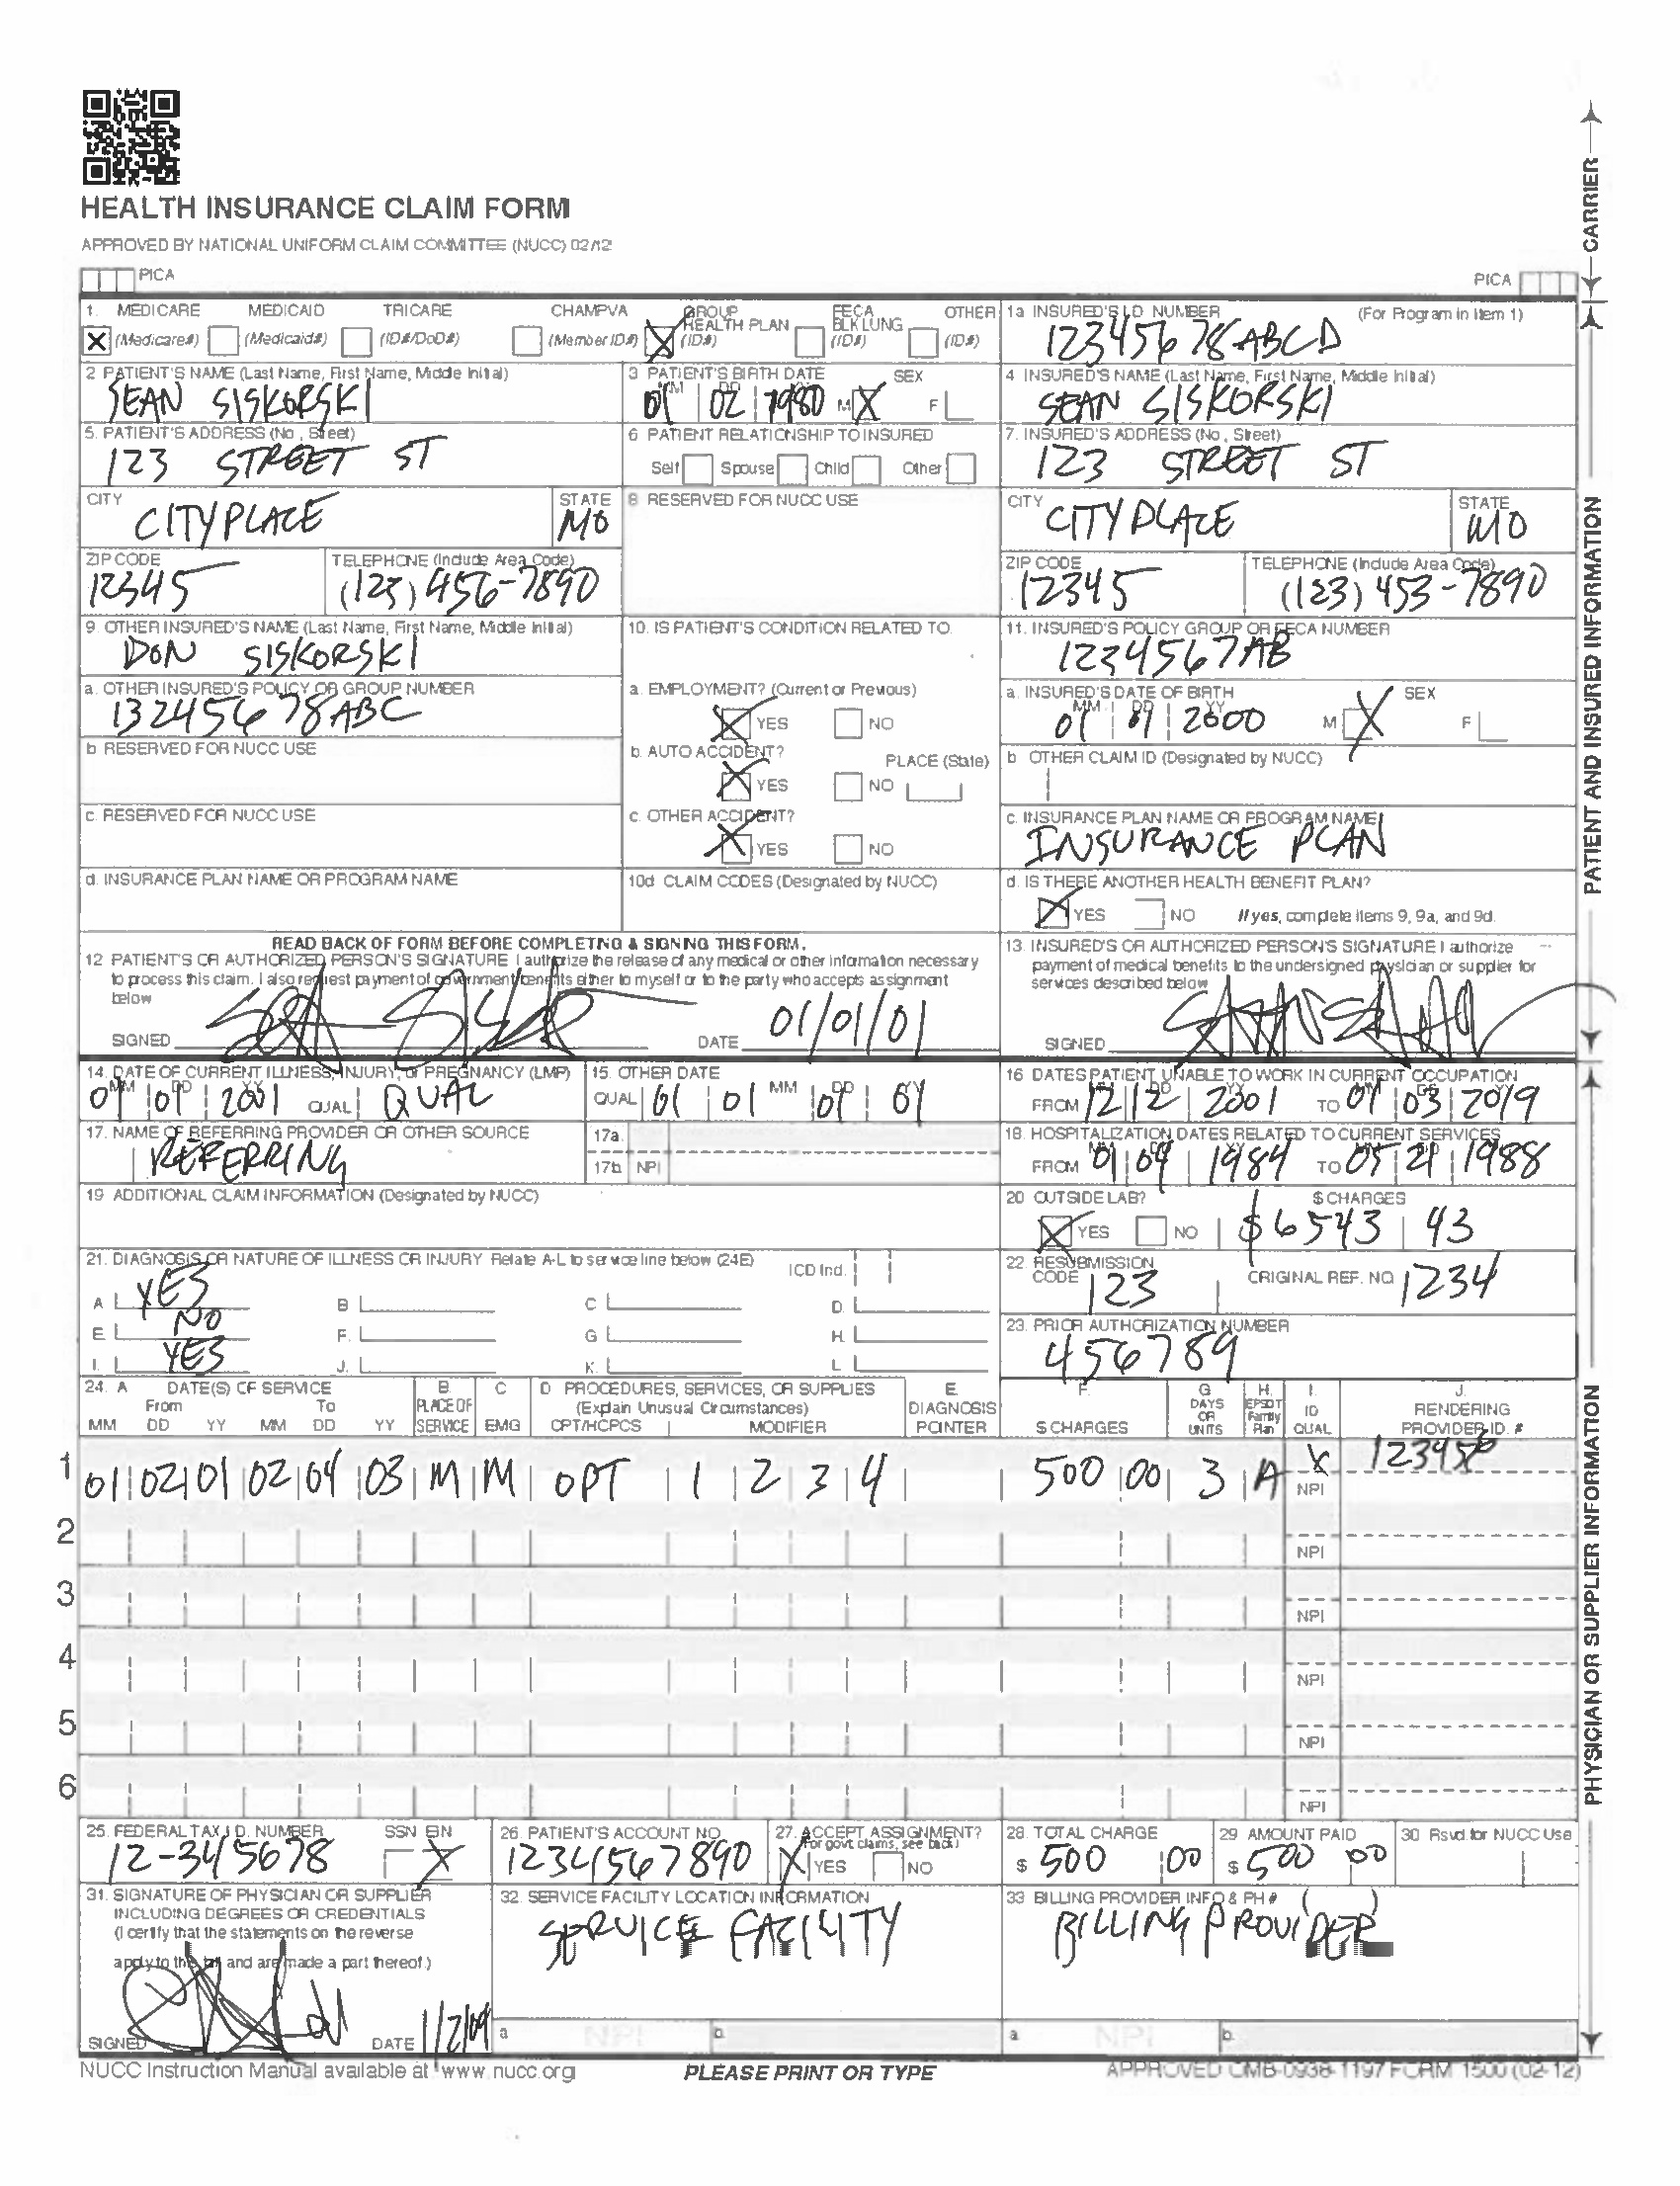 HEALTH INSURANCE CLAIM FORM
APPROVED BY NATIONAL UNIFORM CLAIM COMMITTEE (NUCC) 02/12
PICA
PICA
CARRIER
1. MEDICARE MEDICAID TRICARE CHAMPVA GROUP HEALTH PLAN FECA BLK LUNG OTHER
X (Medicare#) (Medicaid#) (ID#/DoD#) (Member ID#) X (ID#) (ID#) (ID#)
1a INSURED'S I.D NUMBER (For Program in Item 1)
12345678ABCD
2 PATIENT'S NAME (Last Name, First Name, Middle Initial)
SEAN SISKORSKI
3 PATIENT'S BIRTH DATE SEX
MM DD
01 02 1980 M X F
4 INSURED'S NAME (Last Name, First Name, Middle Initial)
SEAN SISKORSKI
5. PATIENT'S ADDRESS (No, Street)
123 STREET ST
6 PATIENT RELATIONSHIP TO INSURED
Self Spouse Child Other
7. INSURED'S ADDRESS (No, Street)
123 STREET ST
CITY STATE
CITYPLACE MO
8 RESERVED FOR NUCC USE
CITY STATE
CITYPLACE MO
ZIP CODE TELEPHONE (Include Area Code)
12345 (123) 456-7890
ZIP CODE TELEPHONE (Include Area Code)
12345 (123) 453-7890
9. OTHER INSURED'S NAME (Last Name, First Name, Middle Initial)
DON SISKORSKI
10. IS PATIENT'S CONDITION RELATED TO
11. INSURED'S POLICY GROUP OR FECA NUMBER
1234567AB
a. OTHER INSURED'S POLICY OR GROUP NUMBER
13245678ABC
a. EMPLOYMENT? (Current or Previous)
X YES NO
a. INSURED'S DATE OF BIRTH SEX
MM DD YY
01 01 2000 M X F
b RESERVED FOR NUCC USE
b. AUTO ACCIDENT? PLACE (State)
X YES NO
b OTHER CLAIM ID (Designated by NUCC)
c. RESERVED FOR NUCC USE
c. OTHER ACCIDENT?
X YES NO
c. INSURANCE PLAN NAME OR PROGRAM NAME
INSURANCE PLAN
d. INSURANCE PLAN NAME OR PROGRAM NAME
10d CLAIM CODES (Designated by NUCC)
d. IS THERE ANOTHER HEALTH BENEFIT PLAN?
X YES NO If yes, complete items 9, 9a, and 9d.
PATIENT AND INSURED INFORMATION
READ BACK OF FORM BEFORE COMPLETING & SIGNING THIS FORM.
12 PATIENT'S OR AUTHORIZED PERSON'S SIGNATURE I authorize the release of any medical or other information necessary
to process this claim. I also request payment of government benefits either to myself or to the party who accepts assignment
below
SIGNED DATE 01/01/01
13. INSURED'S OR AUTHORIZED PERSON'S SIGNATURE I authorize
payment of medical benefits to the undersigned physician or supplier for
services described below
SIGNED
14. DATE OF CURRENT ILLNESS, INJURY, or PREGNANCY (LMP)
MM DD YY
01 01 2001 QUAL QUAL
15. OTHER DATE
MM DD YY
QUAL 01 01 01 01
16 DATES PATIENT UNABLE TO WORK IN CURRENT OCCUPATION
FROM 12 12 2001 TO 01 03 2019
17. NAME OF REFERRING PROVIDER OR OTHER SOURCE
REFERRING
17a.
17b NPI
18. HOSPITALIZATION DATES RELATED TO CURRENT SERVICES
FROM 01 04 1984 TO 05 21 1988
19 ADDITIONAL CLAIM INFORMATION (Designated by NUCC)
20 OUTSIDE LAB? $ CHARGES
X YES NO $6543 43
21. DIAGNOSIS OR NATURE OF ILLNESS OR INJURY Relate A-L to service line below (24E) ICD Ind.
A YES B C D.
E. NO F. G H.
I. YES J. K. L
22. RESUBMISSION CODE ORIGINAL REF. NO
123 1234
23. PRIOR AUTHORIZATION NUMBER
456789
24. A DATE(S) OF SERVICE B. C D PROCEDURES, SERVICES, OR SUPPLIES E. F. G H. I. J.
From To PLACE OF (Explain Unusual Circumstances) DIAGNOSIS DAYS OR EPSDT Family ID RENDERING
MM DD YY MM DD YY SERVICE EMG CPT/HCPCS MODIFIER POINTER $ CHARGES UNITS Plan QUAL PROVIDER ID. #
1 01 02 01 02 04 03 M M OPT 1 2 3 4 500 00 3 A X NPI 123456
2 NPI
3 NPI
4 NPI
5 NPI
6 NPI
PHYSICIAN OR SUPPLIER INFORMATION
25. FEDERAL TAX I.D. NUMBER SSN EIN
12-345678 X
26. PATIENT'S ACCOUNT NO
1234567890
27. ACCEPT ASSIGNMENT?
(For govt claims, see back)
X YES NO
28. TOTAL CHARGE
$ 500 00
29 AMOUNT PAID
$ 500 00
30 Rsvd.for NUCC Use
31. SIGNATURE OF PHYSICIAN OR SUPPLIER
INCLUDING DEGREES OR CREDENTIALS
(I certify that the statements on the reverse
apply to this bill and are made a part thereof.)
SIGNED DATE 1/2/09
32. SERVICE FACILITY LOCATION INFORMATION
SERVICE FACILITY
a. NPI b.
33 BILLING PROVIDER INFO & PH # ( )
BILLING PROVIDER
a. NPI b.
NUCC Instruction Manual available at www.nucc.org
PLEASE PRINT OR TYPE
APPROVED OMB-0938-1197 FORM 1500 (02-12)